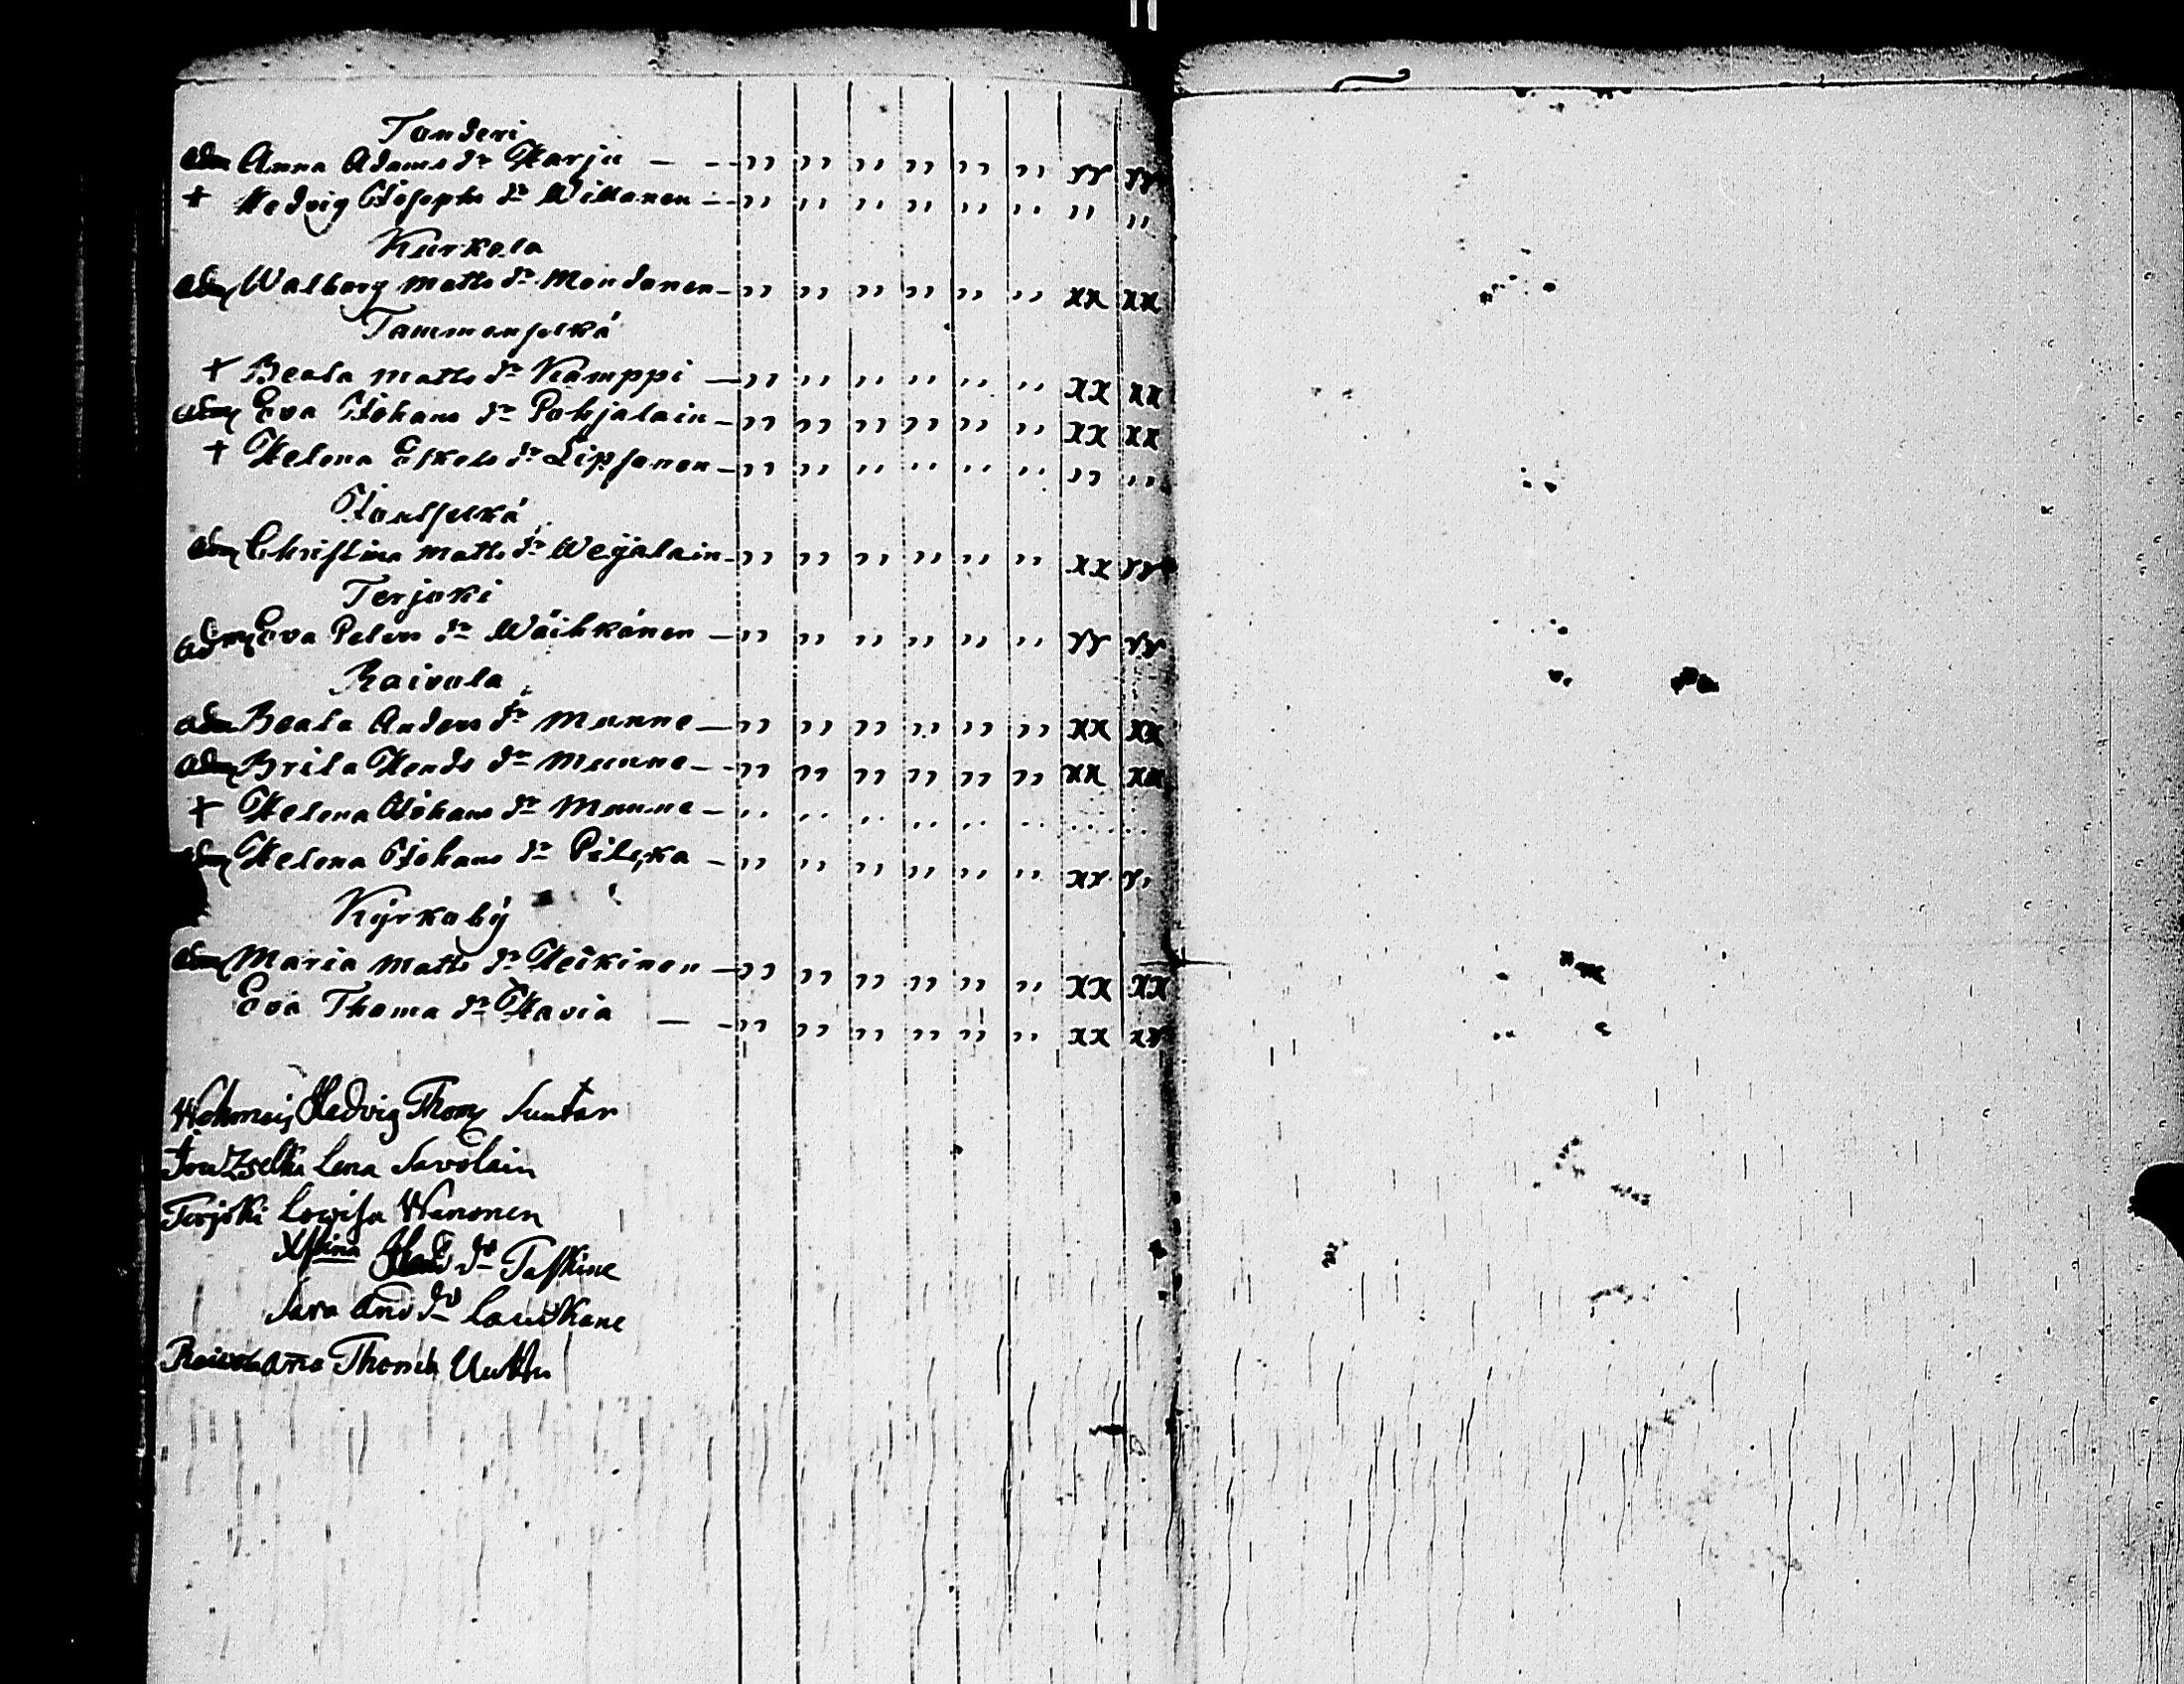 Tonderi
adm Anna Adams dr Harju — - - ,, ,, ,, ,, ,, ,, xx xx
+ Hedvig Josephs dr Willanen - - ,, ,, ,, ,, ,, ,, ,, ,,
Kurkela
adm Walborg Matts dr Mondonen - ,, ,, ,, ,, ,, ,, xx xx
Tammenselkä
+ Beata Matts dr Kämppi — ,, ,, ,, ,, ,, ,, xx xx
adm Eva Johans dr Pohjalain - ,, ,, ,, ,, ,, ,, xx xx
+ Helena Eskels dr Lipsonen - ,, ,, ,, ,, ,, ,, ,, ,,
Joutselkä
adm Christina Matts dr Weijalain - ,, ,, ,, ,, ,, ,, xx xx
Terjoki
adm Eva Peters dr Wäihkänen — ,, ,, ,, ,, ,, ,, xx xx
Raivola
adm Beata Anders dr Munne — ,, ,, ,, ,, ,, ,, xx xx
adm Brita Hends dr Munne - - ,, ,, ,, ,, ,, ,, xx xx
+ Helena Johans dr Munne - ,, ,, ,, ,, ,, ,, ,, ,,
adm Helena Johans dr - ,, ,, ,, ,, ,, ,, xx
Kÿrkobÿ
adm Maria Matts dr Heikinen — ,, ,, ,, ,, ,, ,, xx xx
Eva Thoma dr Havia — - ,, ,, ,, ,, ,, ,, xx xx
Hedvig Thom Suutar
Lena Savolain
Terjoki Lovisa Hanonen
Xstina dr Taskine
Sara And dr Lauskane
Raivola Ana Thom Uuttu